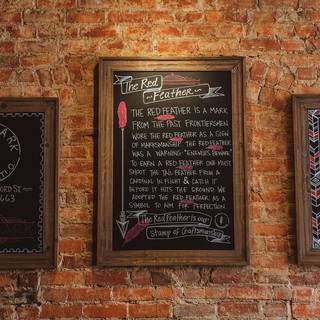 The Red
Feather
THE RED FEATHER IS A MARK
FROM THE PAST FRONTIERSMEN
WORE THE RED FEATHER AS A SIGN
OF MARKSMANSHIP THE RED FEATHER
WAS A WARNING "ENEMIES BEWARE"
TO EARN A RED FEATHER ONE MUST
SHOOT THE TAIL FEATHER FROM A
CARDINAL IN FLIGHT & CATCH IT
BEFORE IT HITS THE GROUND WE
ADOPTED THE RED FEATHER AS A
SYMBOL TO AIM FOR PERFECTION.
The Red Feather is our
Stamp of Craftsmanship
ARK
ORD ST
663